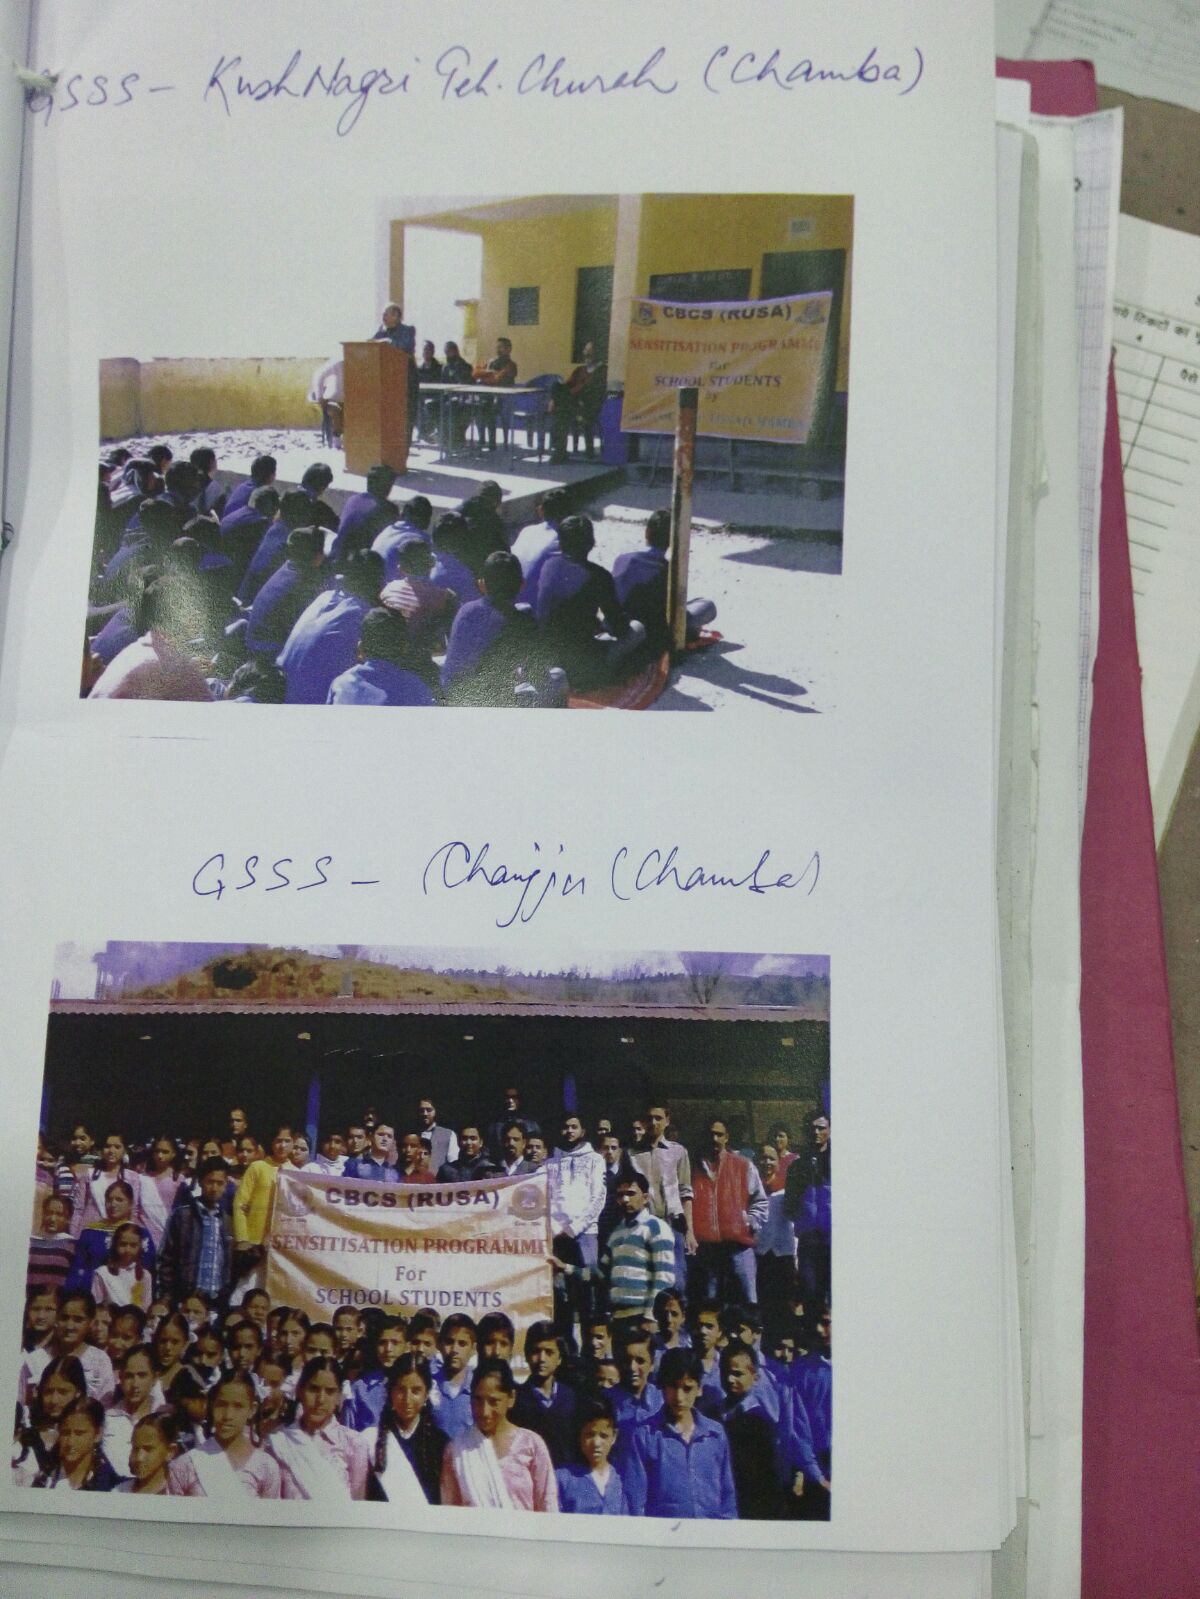 GSSS - KushNagri Teh. Churah (Chamba)
CBCS (RUSA)
SENSITISATION PROGRAMME
for
SCHOOL STUDENTS
by
GSSS - (Chamba)
CBCS (RUSA)
SENSITISATION PROGRAMME
For
SCHOOL STUDENTS